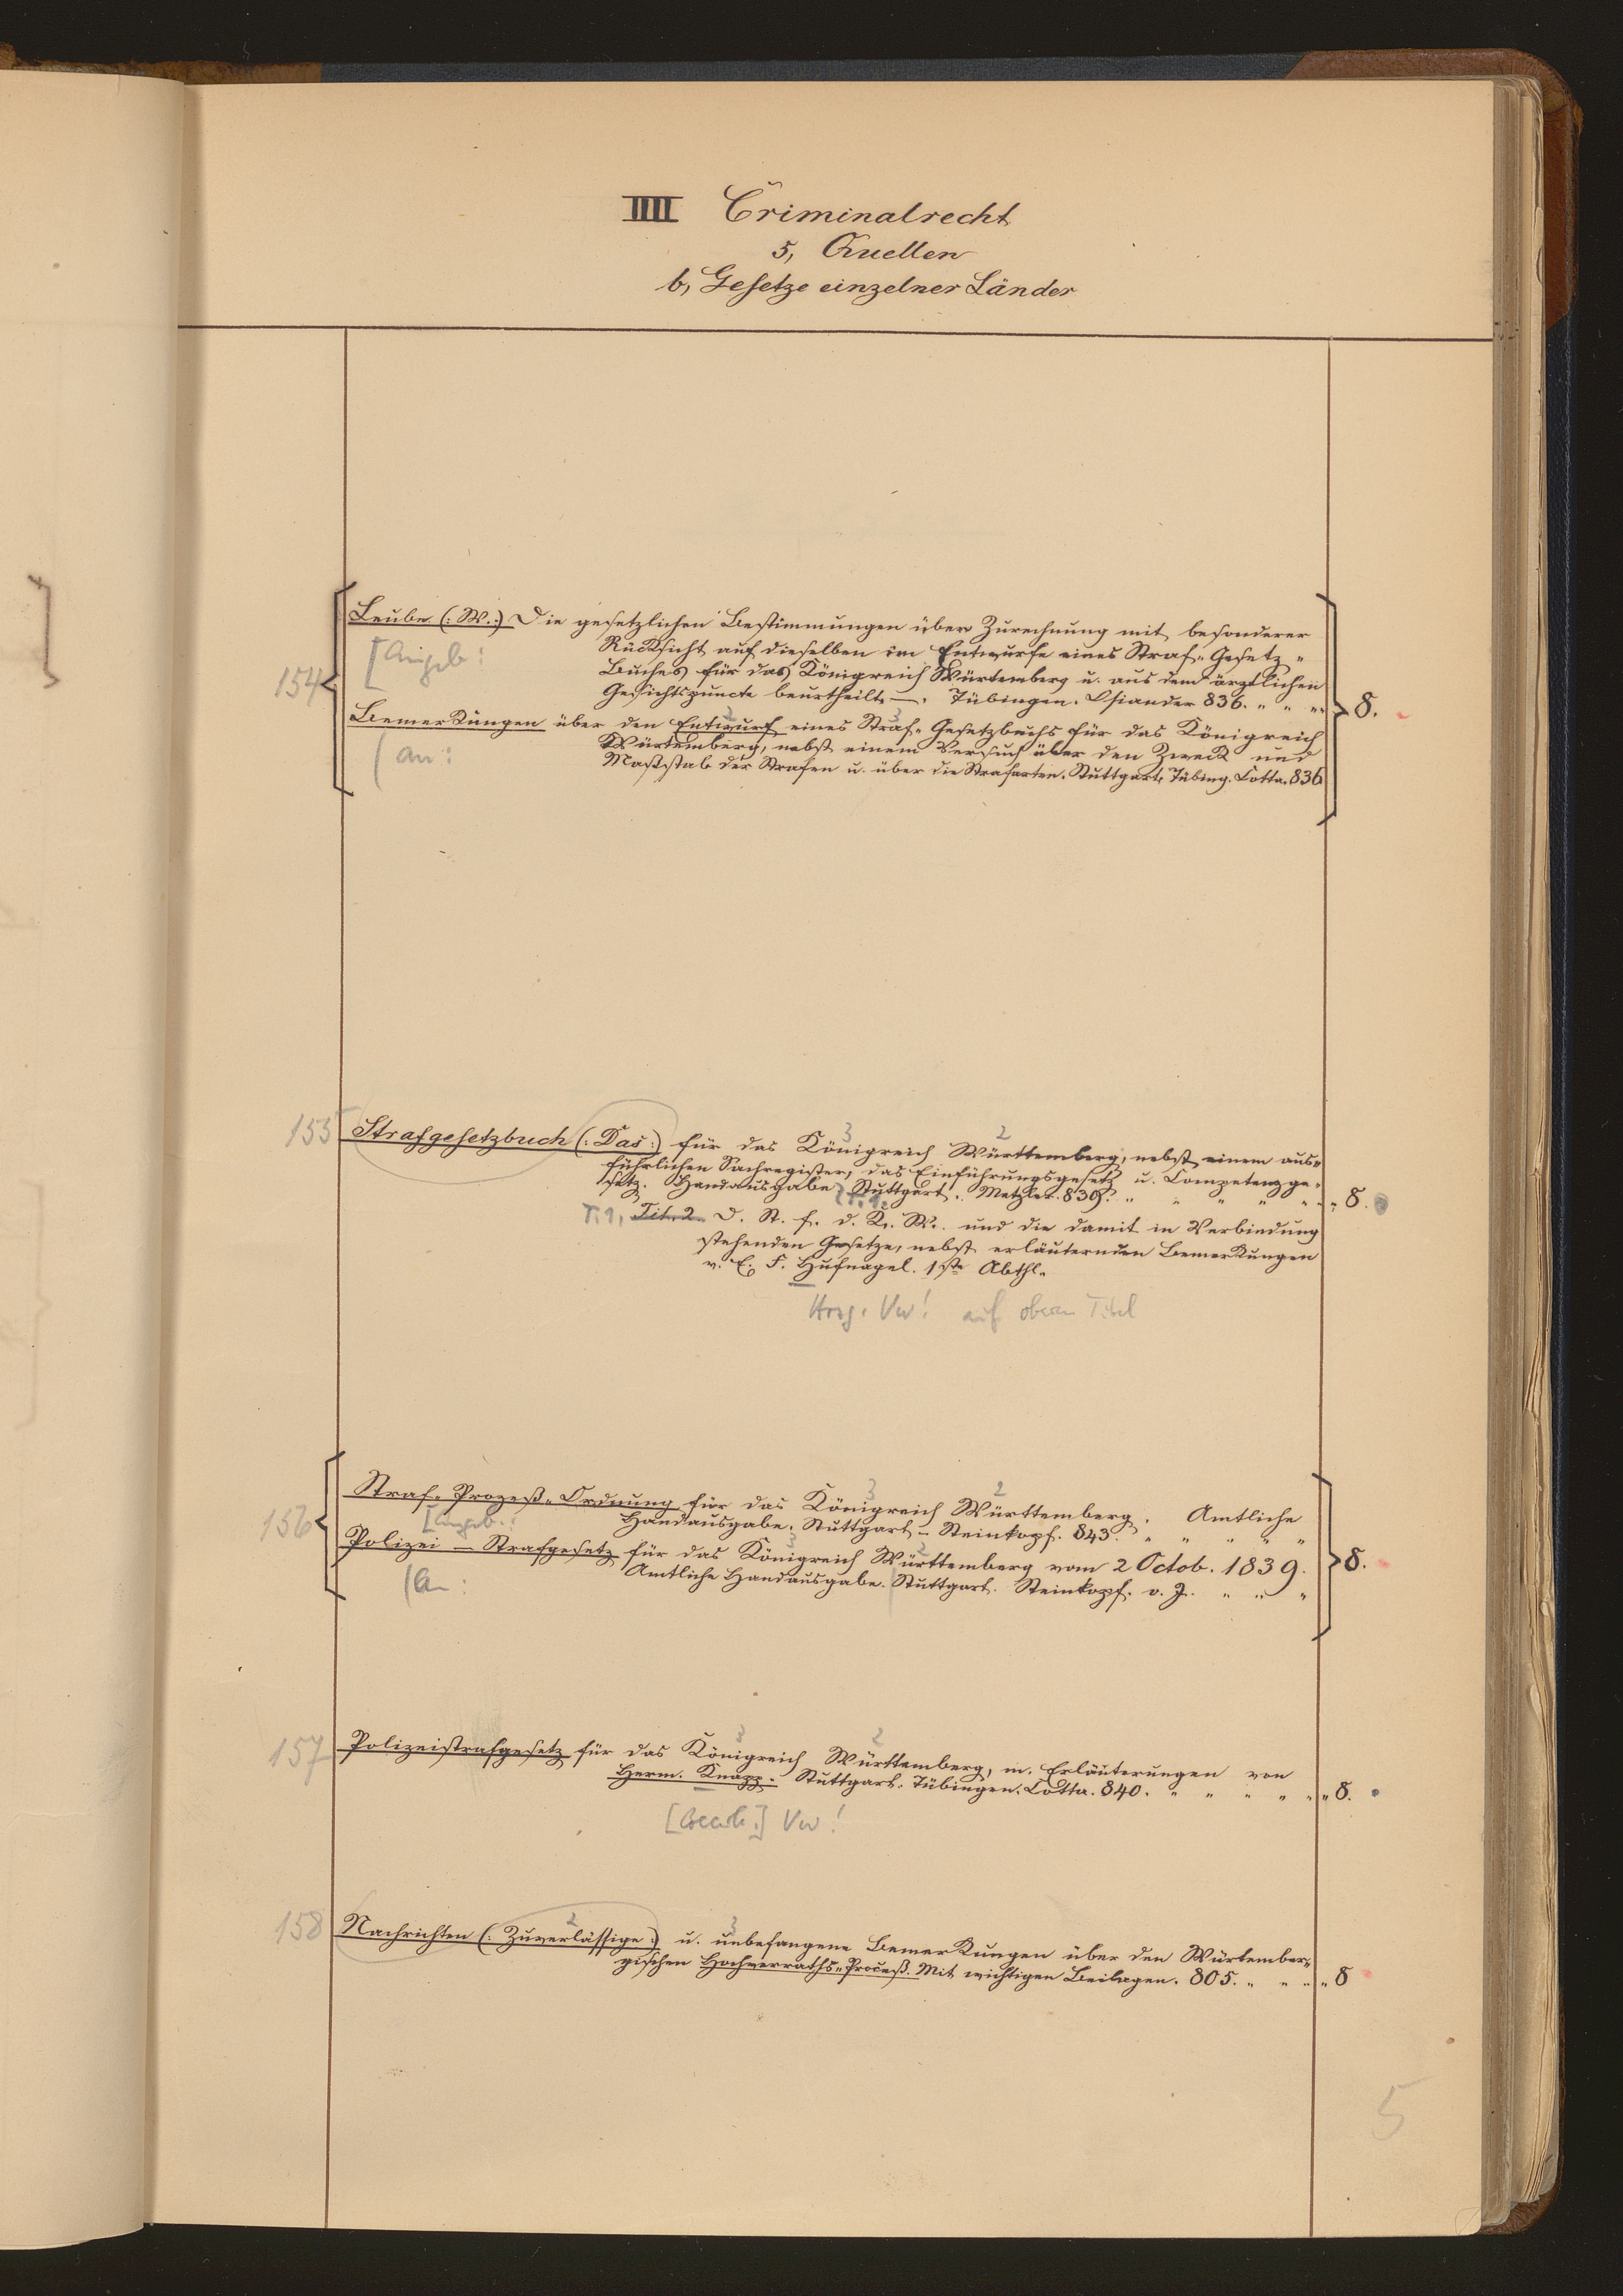 IIII Criminalrecht
5, Quellen
b, Gesetze einzelner Länder
154
Leube (: W. :) Die gesetzlichen Bestimmungen über Zurechnung mit besonderer
[Angeb:
Rücksicht auf dieselben im Entwurfe eines Straf-Gesetz-
Buches für das Königreich Würtemberg u. aus dem ärztlichen
Gesichtspuncte beurtheilt —. Tübingen. Osiander 836. " " "
8.
Bemerkungen über den Entwurf eines Straf-Gesetzbuchs für das Königreich
2 3
(an:
Würtemberg, nebst einem Versuch über den Zweck und
Maßstab der Strafen u. über die Strafarten. Stuttgart, Tübing. Cotta. 836
155
3 2
Strafgesetzbuch (: Das :) für das Königreich Württemberg, nebst einem aus-
führlichen Sachregister, das Einführungsgesetz u. Competenzge-
setz. Handausgabe. Stuttgart. Metzler. 839. " " " " " " 8.
T. 1, Tit. 2. D. St. f. d. K. W. und die damit in Verbindung
stehenden Gesetze, nebst erläuternden Bemerkungen
v. E. F. Hufnagel. 1ste Abthl.
Hrsg. Vw! auf obern Titel
156
3 2
Straf-Prozeß-Ordnung für das Königreich Württemberg. Amtliche
[Angeb.:
Handausgabe. Stuttgart - Steinkopf. 843. " " " " "
3 2
Polizei - Strafgesetz für das Königreich Württemberg vom 2 Octob. 1839.
8.
(An:
Amtliche Handausgabe. Stuttgart. Steinkopf. o. J. " " "
157
3 2
Polizeistrafgesetz für das Königreich Württemberg, m. Erläuterungen von
Herm. Knapp. Stuttgart. Tübingen. Cotta. 840. " " " " " " 8.
[Bearb.] Vw!
158
2 3
Nachrichten (: Zuverlässige :) u. unbefangene Bemerkungen über den Würtember-
gischen Hochverraths-Proceß. Mit wichtigen Beilagen. 805. " " " " 8
5